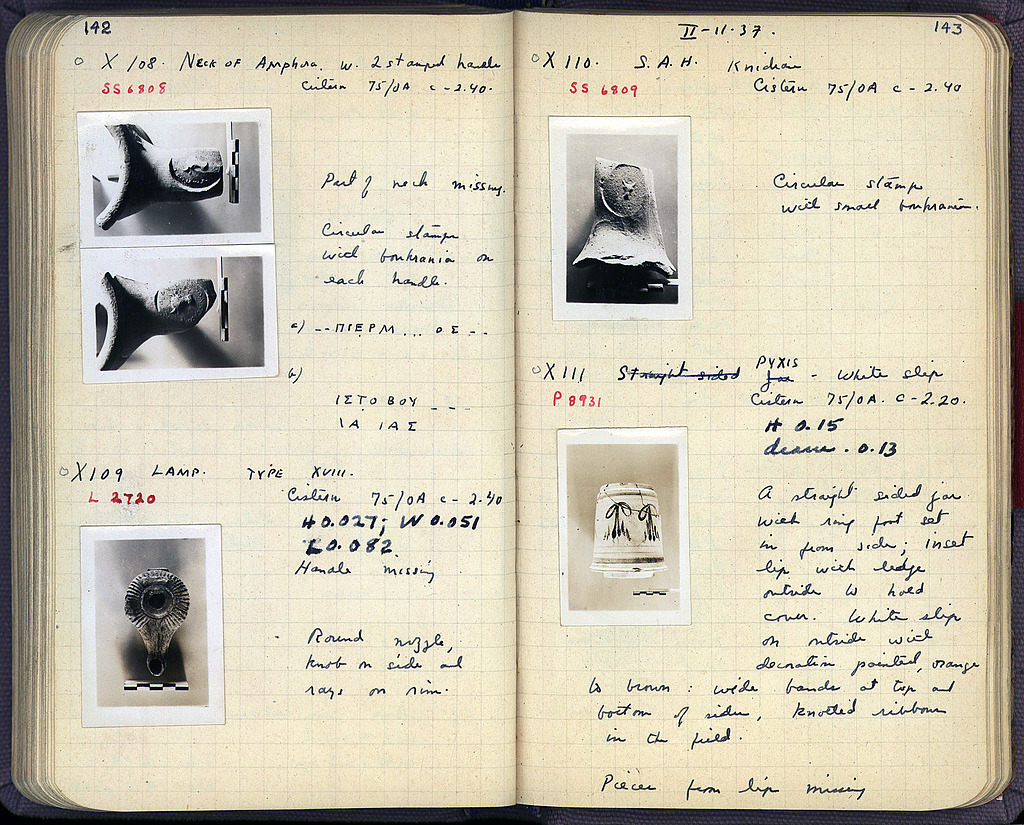 142
X 108. Neck of Amphora. w. 2 stamped handle
SS 6808
Cistern 75/OA c - 2.40.
Part of neck missing.
Circular stamps
with boukrania on
each handle.
a) --ΠΙΕΡΜ ... ΟΣ --
b)
ΙΣΤΟΒΟΥ ---
ΙΑ ΙΑΣ
X109 LAMP. TYPE XVIII.
L 2720
Cistern 75/OA c - 2.40
H 0.027; W 0.051
L 0.082
Handle missing
Round nozzle,
knob on side and
rays on rim.
II-11.37.
143
X 110. S.A.H. Knidian
SS 6809
Cistern 75/OA c - 2.40
Circular stamp
with small boukranion.
X 111 Straight sided Jar PYXIS - White slip
P 8931
Cistern 75/OA. c - 2.20.
H 0.15
diam. 0.13
A straight sided jar
with ring foot set
in from side; inset
lip with ledge
outside to hold
cover. White slip
on outside with
decoration painted, orange
to brown: wide bands at top and
bottom of sides, knotted ribbons
in the field.
Pieces from lip missing